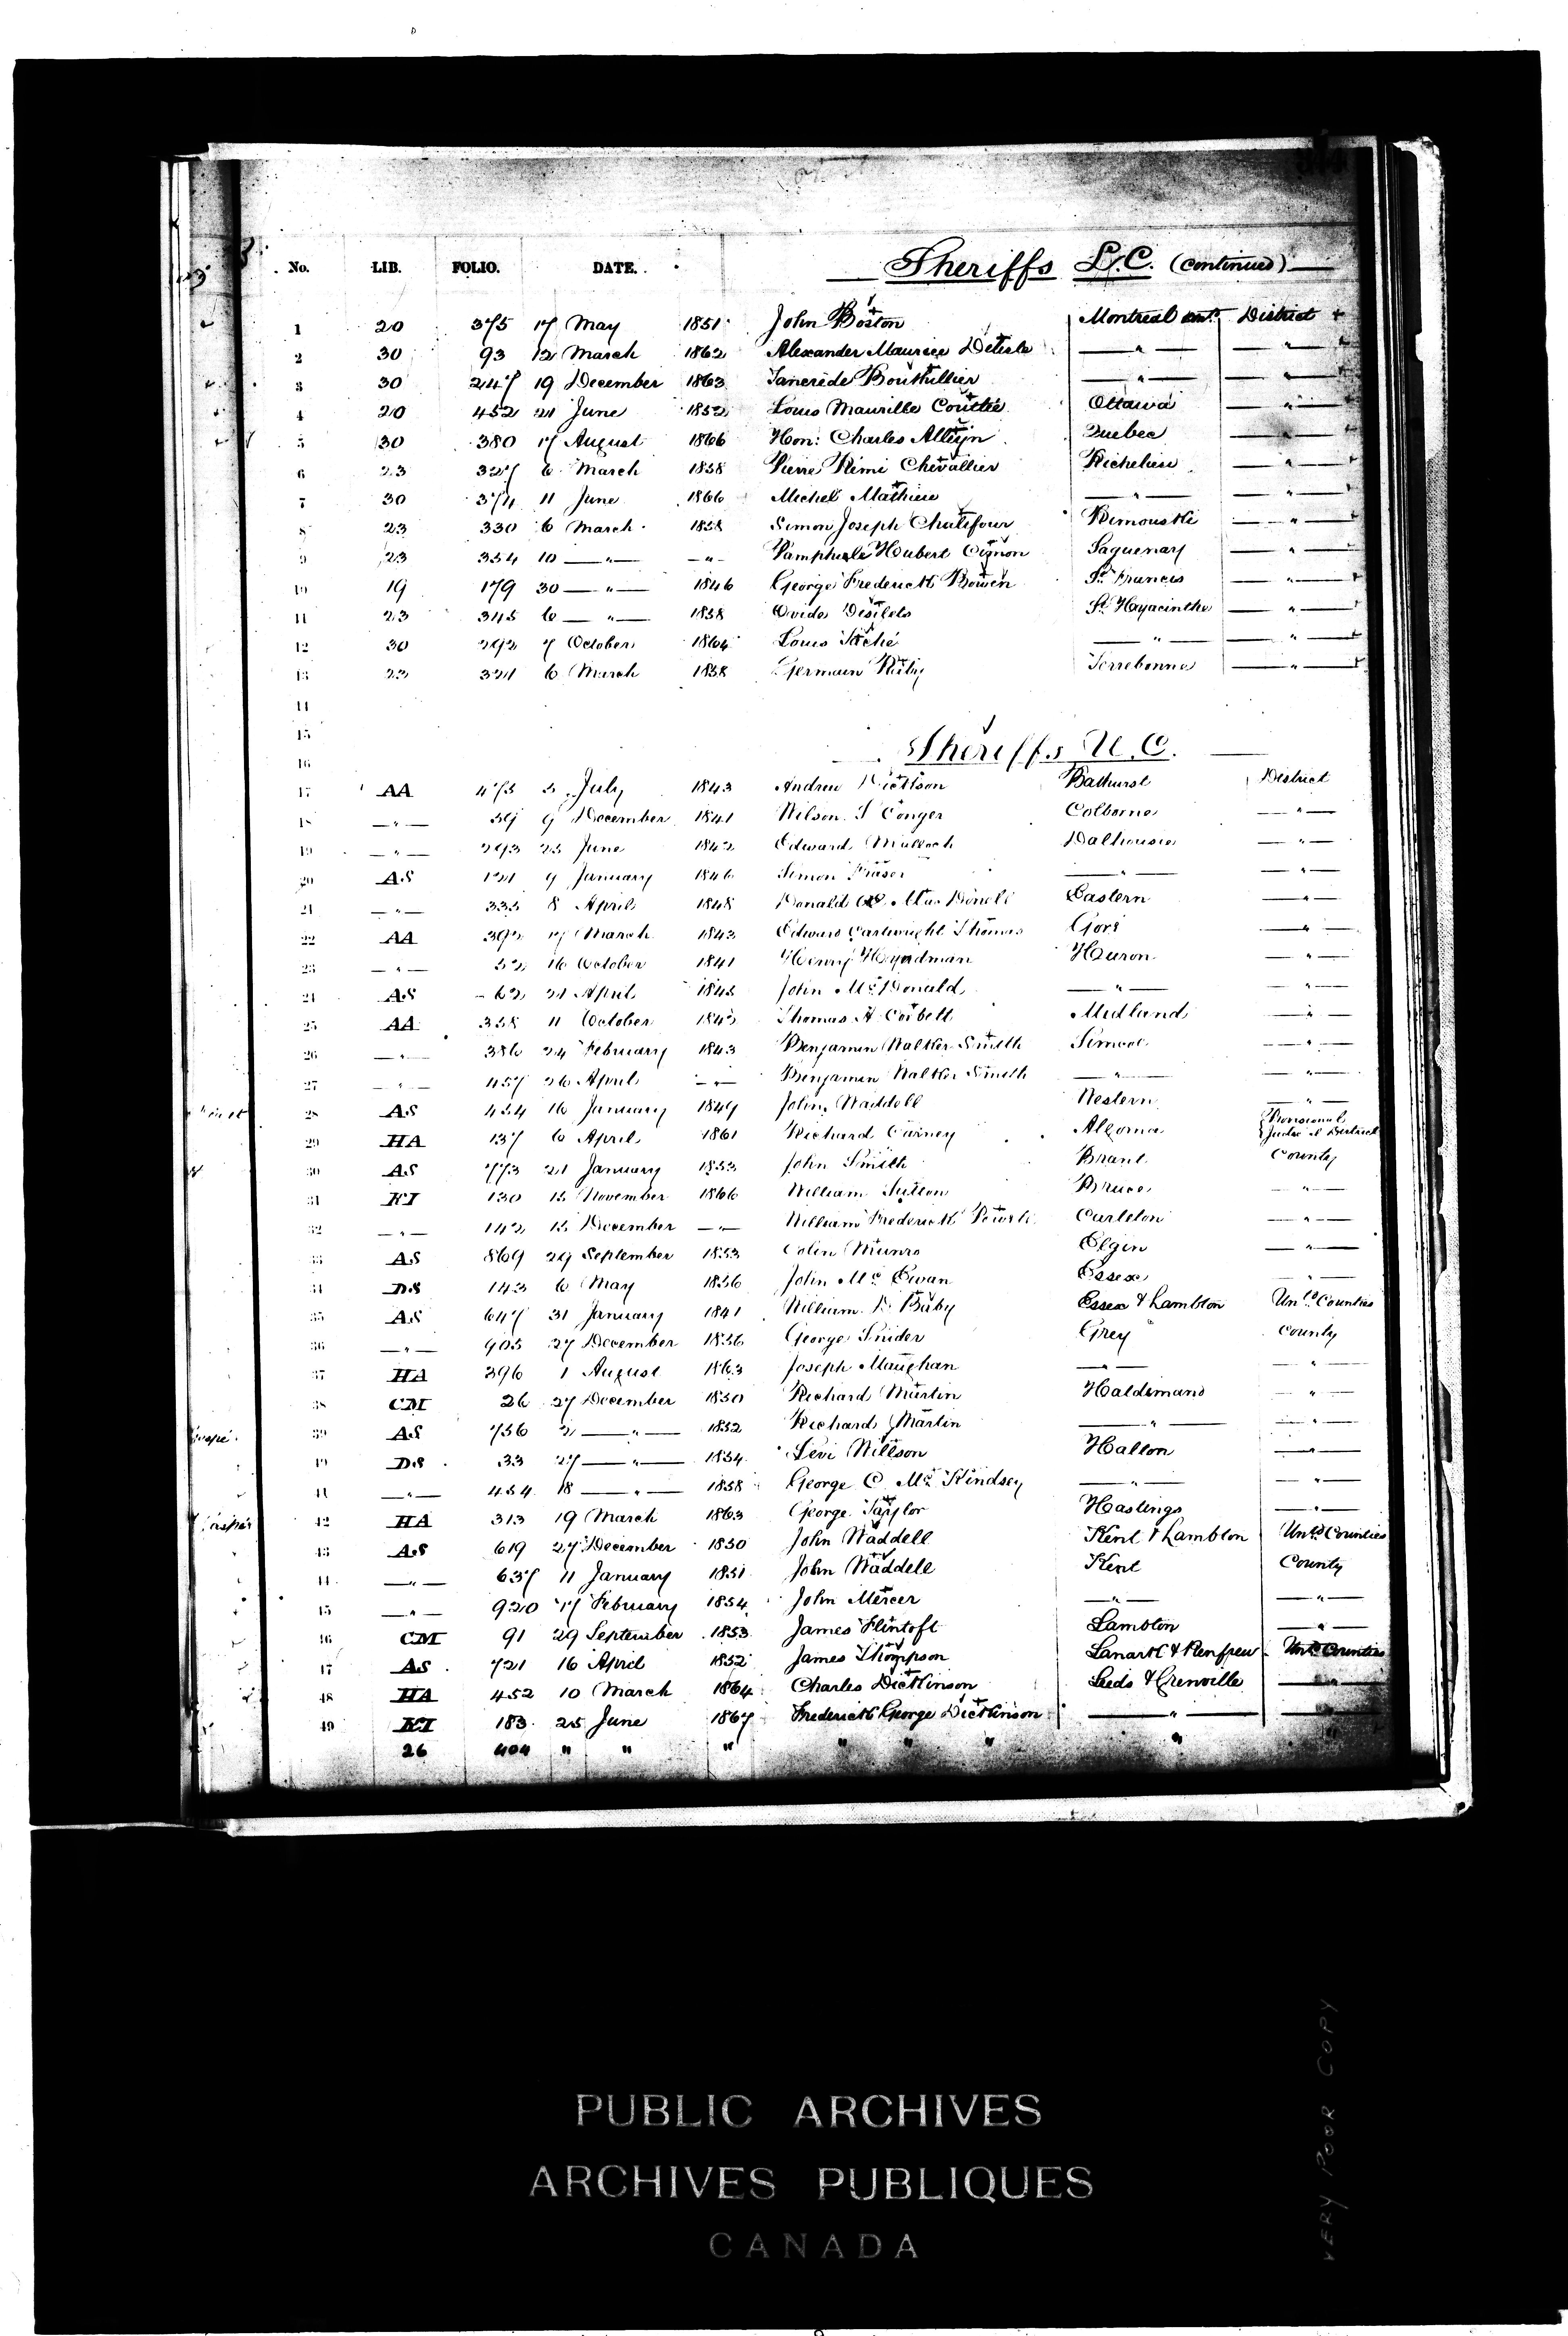 No. LIB. FOLIO. DATE. Sheriffs L.C. (continued)
1 20 375 17 May 1851 John Boston Montreal District
2 30 93 12 March 1862 Alexander Maurice Delisle — " — — " —
3 30 247 19 December 1863 Tancrède Bouthillier — " — — " —
4 20 452 21 June 1852 Louis Maurille Coutlée Ottawa — " —
5 30 380 17 August 1866 Hon: Charles Alleyn Quebec — " —
6 23 327 6 March 1858 Pierre Rémi Chevallier Richelieu — " —
7 30 374 11 June 1866 Michel Mathieu — " — — " —
8 23 330 6 March 1858 Simon Joseph Chalifour Rimouski — " —
9 23 354 10 — " — — " — Pamphile Hubert Saguenay — " —
10 19 179 30 — " — 1846 George Frederick Bowen St. Francis — " —
11 23 345 6 — " — 1858 Ovide Désilets St. Hyacinthe — " —
12 30 292 7 October 1864 Louis Taché — " — — " —
13 23 321 6 March 1858 Germain Terrebonne — " —
14
15
16 Sheriffs U.C.
17 AA 475 5 July 1843 Andrew Dickson Bathurst District
18 — " — 59 9 December 1841 Wilson S Conger Colborne — " —
19 — " — 293 25 June 1842 Edward Malloch Dalhousie — " —
20 AS 121 9 January 1846 Simon Fraser — " — — " —
21 — " — 335 8 April 1848 Donald Æ Mac Donell Eastern — " —
22 AA 392 17 March 1843 Edward Cartwright Thomas Gore — " —
23 — " — 52 16 October 1841 Henry Hyndman Huron — " —
24 AS 62 21 April 1845 John McDonald — " — — " —
25 AA 358 11 October Thomas A Corbett Midland — " —
26 — " — 386 24 February 1843 Benjamin Walker Smith Simcoe — " —
27 — " — 457 26 April — " — Benjamin Walker Smith — " — — " —
28 AS 454 16 January 1849 John Waddell Western — " —
29 HA 137 6 April 1861 Richard Carney Algoma Provisional Judic'l District
30 AS 773 21 January 1853 John Smith Brant County
31 KI 130 15 November 1866 William Sutton Bruce — " —
32 — " — 142 15 December — " — William Frederick Powell Carleton — " —
33 AS 869 29 September 1853 Colin Munro Elgin — " —
34 DS 143 6 May 1856 John McEwan Essex — " —
35 AS 647 31 January William D Baby Essex & Lambton Untd Counties
36 — " — 905 27 December George Snider Grey County
37 HA 396 1 August 1863 Joseph Maughan — " — — " —
38 CM 26 27 December 1850 Richard Martin Haldimand — " —
39 AS 756 2 — " — 1852 Richard Martin — " — — " —
40 DS 33 27 — " — 1854 Levi Willson Halton — " —
41 — " — 454 18 — " — 1858 George C. McKindsey — " — — " —
42 HA 313 19 March 1863 George Taylor Hastings — " —
43 AS 619 27 December 1850 John Waddell Kent & Lambton Untd Counties
44 — " — 637 11 January 1851 John Waddell Kent County
45 — " — 920 17 February 1854 John Mercer — " — — " —
46 CM 91 29 September 1853 James Flintoft Lambton — " —
47 AS 721 16 April 1852 James Thompson Lanark & Renfrew Untd Counties
48 HA 452 10 March 1864 Charles Dickinson Leeds & Grenville — " —
49 KI 183 25 June 1867 Frederick George Dickinson — " — — " —
26 404 " " " " " " " "
PUBLIC ARCHIVES
ARCHIVES PUBLIQUES
CANADA
VERY POOR COPY